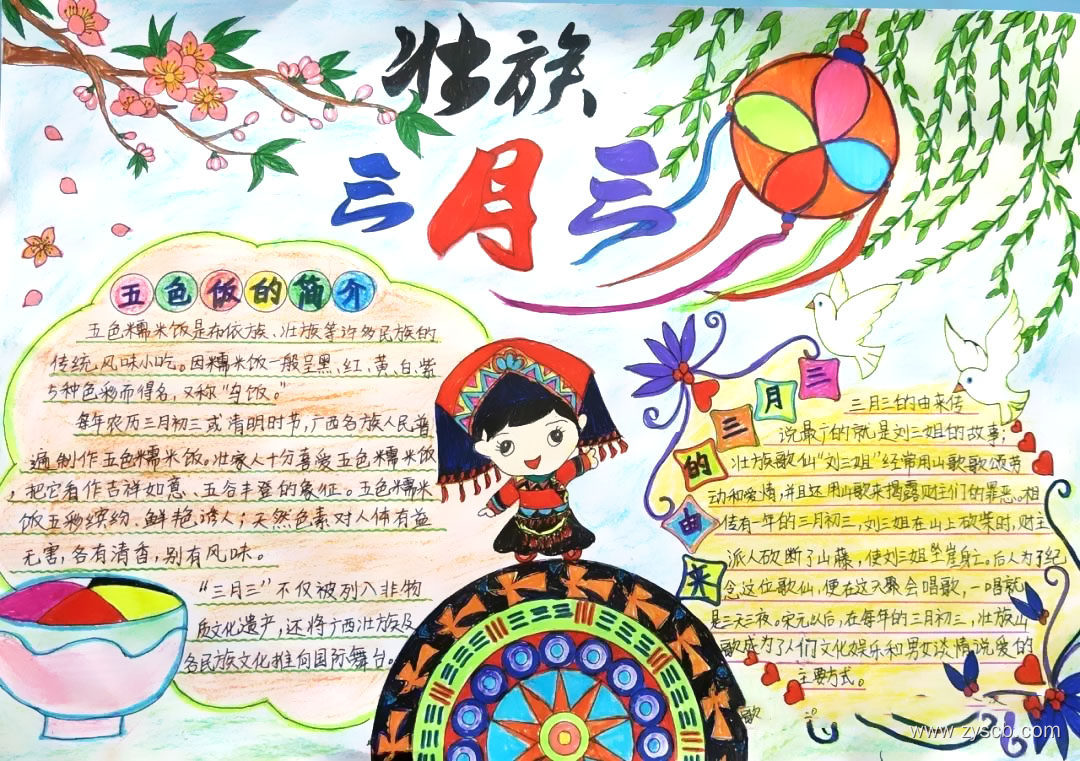 壮族
三月三
五色饭的简介
五色糯米饭是布依族、壮族等许多民族的
传统风味小吃。因糯米饭一般呈黑、红、黄、白、紫
5种色彩而得名，又称“乌饭。”
每年农历三月初三或清明时节，广西各族人民普
遍制作五色糯米饭。壮家人十分喜爱五色糯米饭
，把它看作吉祥如意、五谷丰登的象征。五色糯米
饭五彩缤纷、鲜艳诱人；天然色素对人体有益
无害，各有清香，别有风味。
“三月三”不仅被列入非物
质文化遗产，还将广西壮族及
各民族文化推向国际舞台。
三月三的由来
三月三的由来传
说最广的就是刘三姐的故事；
壮族歌仙“刘三姐”经常用山歌歌颂劳
动和爱情，并且还用山歌来揭露财主们的罪恶。相
传有一年的三月初三，刘三姐在山上砍柴时，财主
派人砍断了山藤，使刘三姐坠崖身亡。后人为了纪
念这位歌仙，便在这天聚会唱歌，一唱就
是三天三夜。宋元以后，在每年的三月初三，壮族山
歌成为了人们文化娱乐和男女谈情说爱的
主要方式。
歌
www.zyscb.com